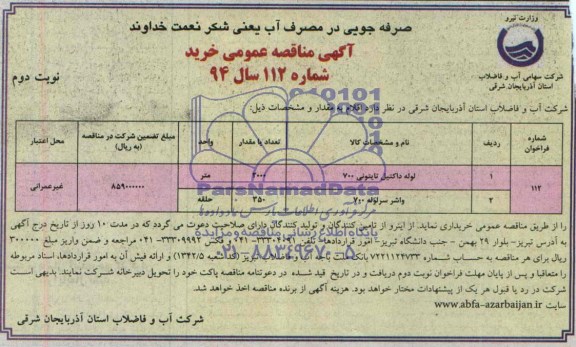 صرفه جویی در مصرف آب یعنی شکر نعمت خداوند
وزارت نیرو
شرکت سهامی آب و فاضلاب
استان آذربایجان شرقی
آگهی مناقصه عمومی خرید
شماره ۱۱۲ سال ۹۴
نوبت دوم
شرکت آب و فاضلاب استان آذربایجان شرقی در نظر دارد اقلام به مقدار و مشخصات ذیل:
شماره فراخوان ردیف نام و مشخصات کالا تعداد یا مقدار واحد مبلغ تضمین شرکت در مناقصه (به ریال) محل اعتبار
۱۱۲ ۱ لوله داکتیل تایتونی ۷۰۰ ۲۰۰۰ متر ۸۵۹۰۰۰۰۰۰ غیرعمرانی
۲ واشر سرلوله ۷۰۰ ۳۵۰ حلقه
را از طریق مناقصه عمومی خریداری نماید. از اینرو از تامین کنندگان و تولید کنندگان دارای صلاحیت دعوت می گردد که در مدت ۱۰ روز از تاریخ درج آگهی
به آدرس تبریز- بلوار ۲۹ بهمن - جنب دانشگاه تبریز- امور قراردادها، تلفن ۰۴۱ فکس ۳۳۳۰۹۹۹۳-۰۴۱ مراجعه و ضمن واریز مبلغ ۳۰۰۰۰۰
ریال برای هر مناقصه به حساب شماره ۷۲۲۱۱۲۴۷۳۳ بانک تبریز (کدشعبه ۱۳۴۲/۵) و ارائه فیش آن به امور قراردادها، اسناد مربوطه
را متعاقبا و پس از پایان مهلت فراخوان نوبت دوم دریافت و در تاریخ قید شده در دعوتنامه مناقصه پاکت خود را تحویل دبیرخانه شرکت نمایند. بدیهی است
شرکت در رد یا قبول هر یک از پیشنهادات مختار خواهد بود. هزینه آگهی از برنده مناقصه اخذ خواهد شد.
سایت www.abfa-azarbaijan.ir
شرکت آب و فاضلاب استان آذربایجان شرقی
ParsNamadData
پایگاه اطلاع رسانی مناقصه و مزایده
۰۲۱-۸۸۳۴۹۶۷۰-۵